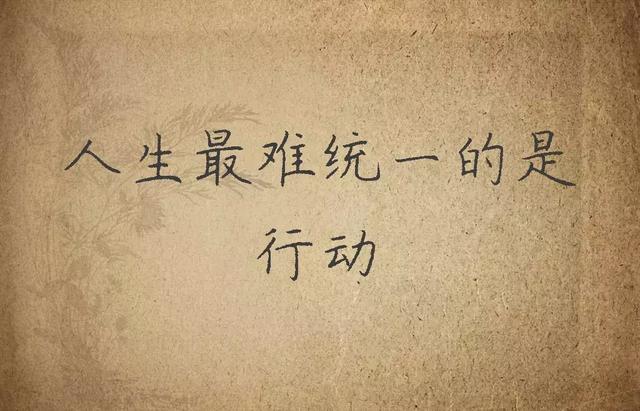 人生最难统一的是
行动